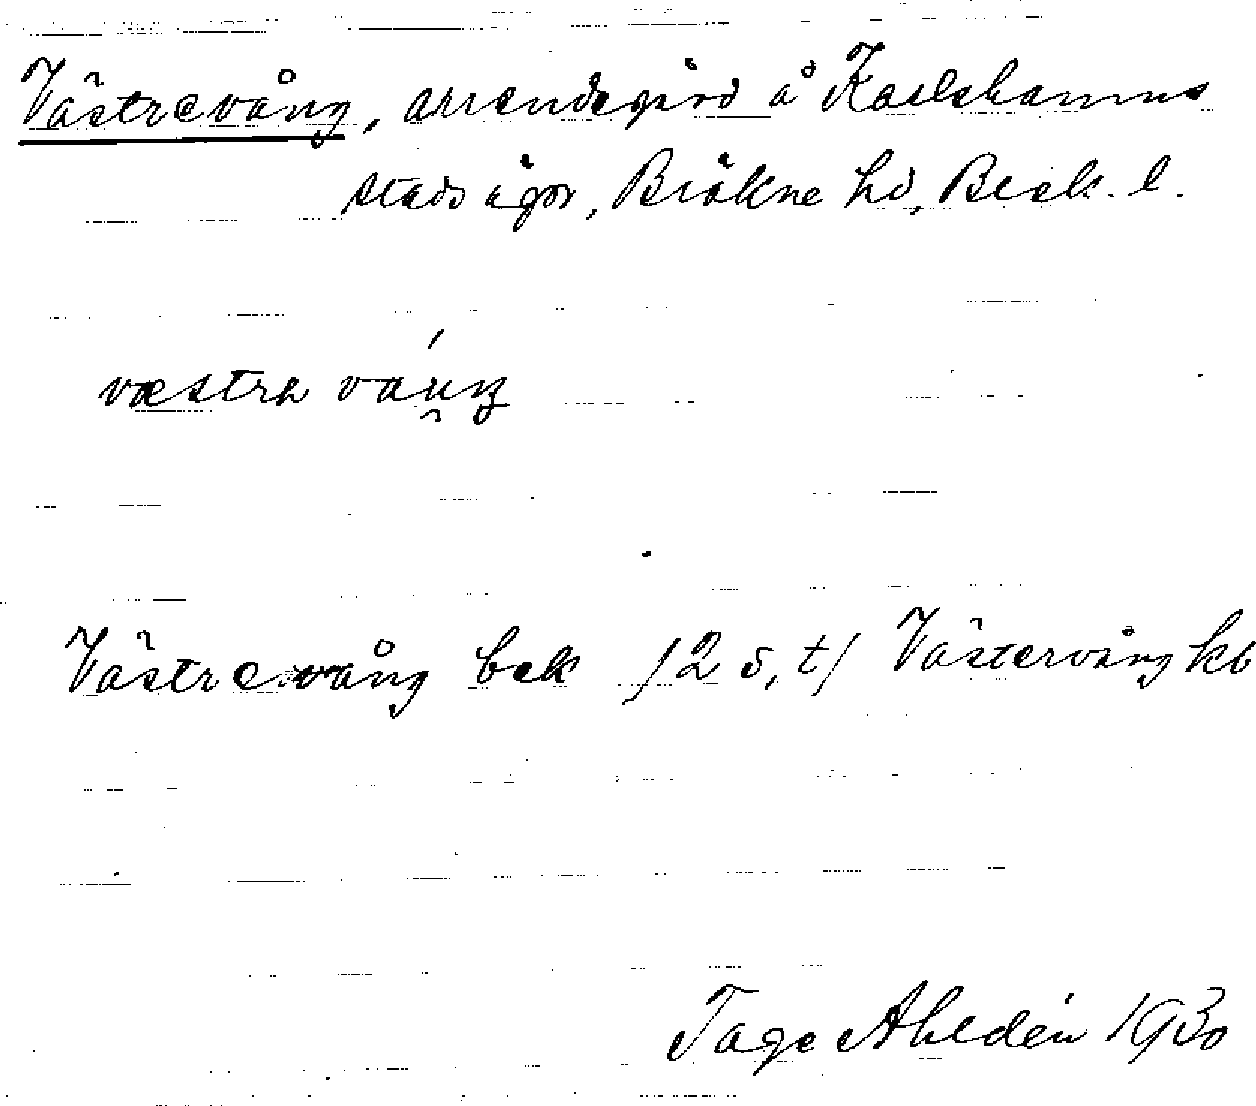 Västrevång, arrendegård å Karlshamns
stads ägor, Bräkne hd, Blek. l.
væstra våuŋ
Västrevång bek /2 s, t/ Västervång kb
Tage Ahldén 1930